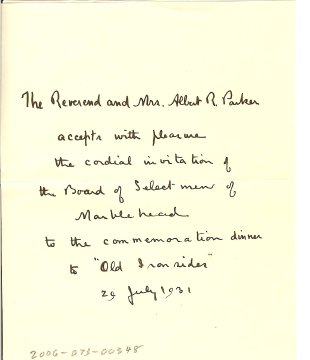 The Reverend and Mrs. Albert R. Parker
accepts with pleasure
the cordial invitation of
the Board of Selectmen of
Marblehead
to the commemoration dinner
to "Old Ironsides"
29 July 1931
2006-073-00348